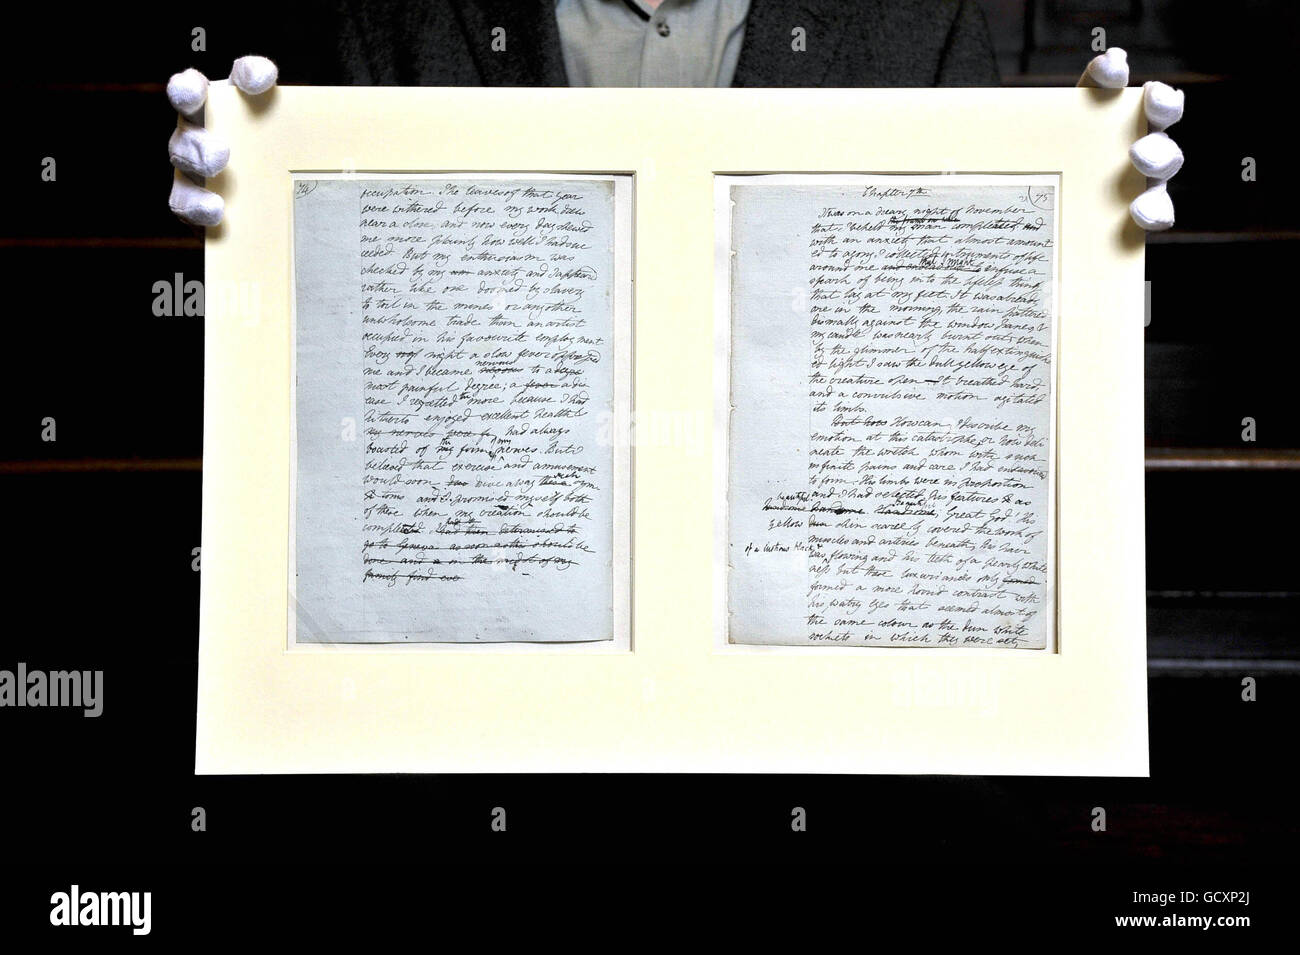 74
occupation. The leaves of that year
were withered before my work drew
near a close, and now every day shewed
me more plainly how well I had suc
ceeded. But my enthusiasm was
checked by my anxiety and I appeared
rather like one doomed by slavery
to toil in the mines or any other
unwholsome trade than an artist
occupied in his favourite employment
Every night a slow fever oppressed
me and I became nervous to a
most painful degree; a fever a dis
ease I regretted the more because I had
hitherto enjoyed excellent health &
my nerves were had always
boasted of the firmness of my nerves. But I
beleived that exercise and amusement
would soon drive away such sym
toms and I promised myself both
of these when my creation should be
completed. I had then determined to
go to Geneva as soon as this should be
done and in the midst of my
family find
75
Chapter 7th
It was on a dreary night of November
that I beheld my man compleated and
with an anxiety that almost amount
ed to agony I collected instruments of life
around me that I might infuse a
spark of being into the lifeless thing
that lay at my feet. It was already
one in the morning, the rain pattered
dismally against the window panes, &
my candle was nearly burnt out, when
by the glimmer of the half extinguish
ed light I saw the dull yellow eye of
the creature open It breathed hard
and a convulsive motion agitated
its limbs.
But how How can I describe my
emotion at this catastrophe; or how deli
neate the wretch whom with such
infinite pains and care I had endeavoured
to form. His limbs were in proportion
and I had selected his features as
beautiful
handsome handsome. Handsome; Great God! His
yellow dun skin scarcely covered the work of
muscles and arteries beneath; his hair
of a lustrous black &
was flowing and his teeth of a pearly white
ness but these luxuriancies only
formed a more horrid contrast with
his watry eyes that seemed almost of
the same colour as the dun white
sockets in which they were set,
alamy
alamy
Image ID: GCXP2J
www.alamy.com